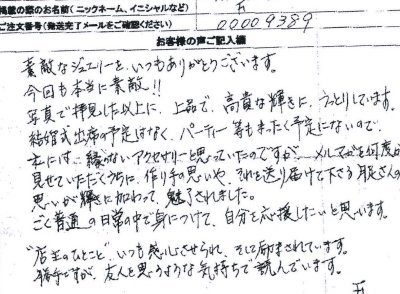 掲載の際のお名前(ニックネーム、イニシャルなど)
ご注文番号(発送完了メールをご確認ください) 00009389
お客様の声ご記入欄
素敵なジュエリーを、いつもありがとうございます。
今回も本当に素敵!!
写真で拝見した以上に、上品で、高貴な輝きに、うっとりしています。
結婚式出席の予定はなく、パーティー等もまったく予定にないので、
私には、縁がないアクセサリーと思っていたのですが、メルマガを何度か
見せていただくうちに、作り手の思いや、それを送り届けて下さる店長さんの
思いが輝きに加わって、魅了されました。
ごく普通の日常の中で身につけて、自分を応援したいと思います。
"店主のひとこと"、いつも感心させられ、そして励まされています。
勝手ですが、友人と思うような気持ちで読んでいます。